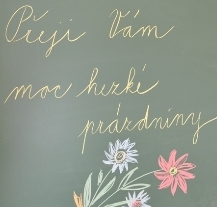 Přeji Vám
moc hezké
prázdniny